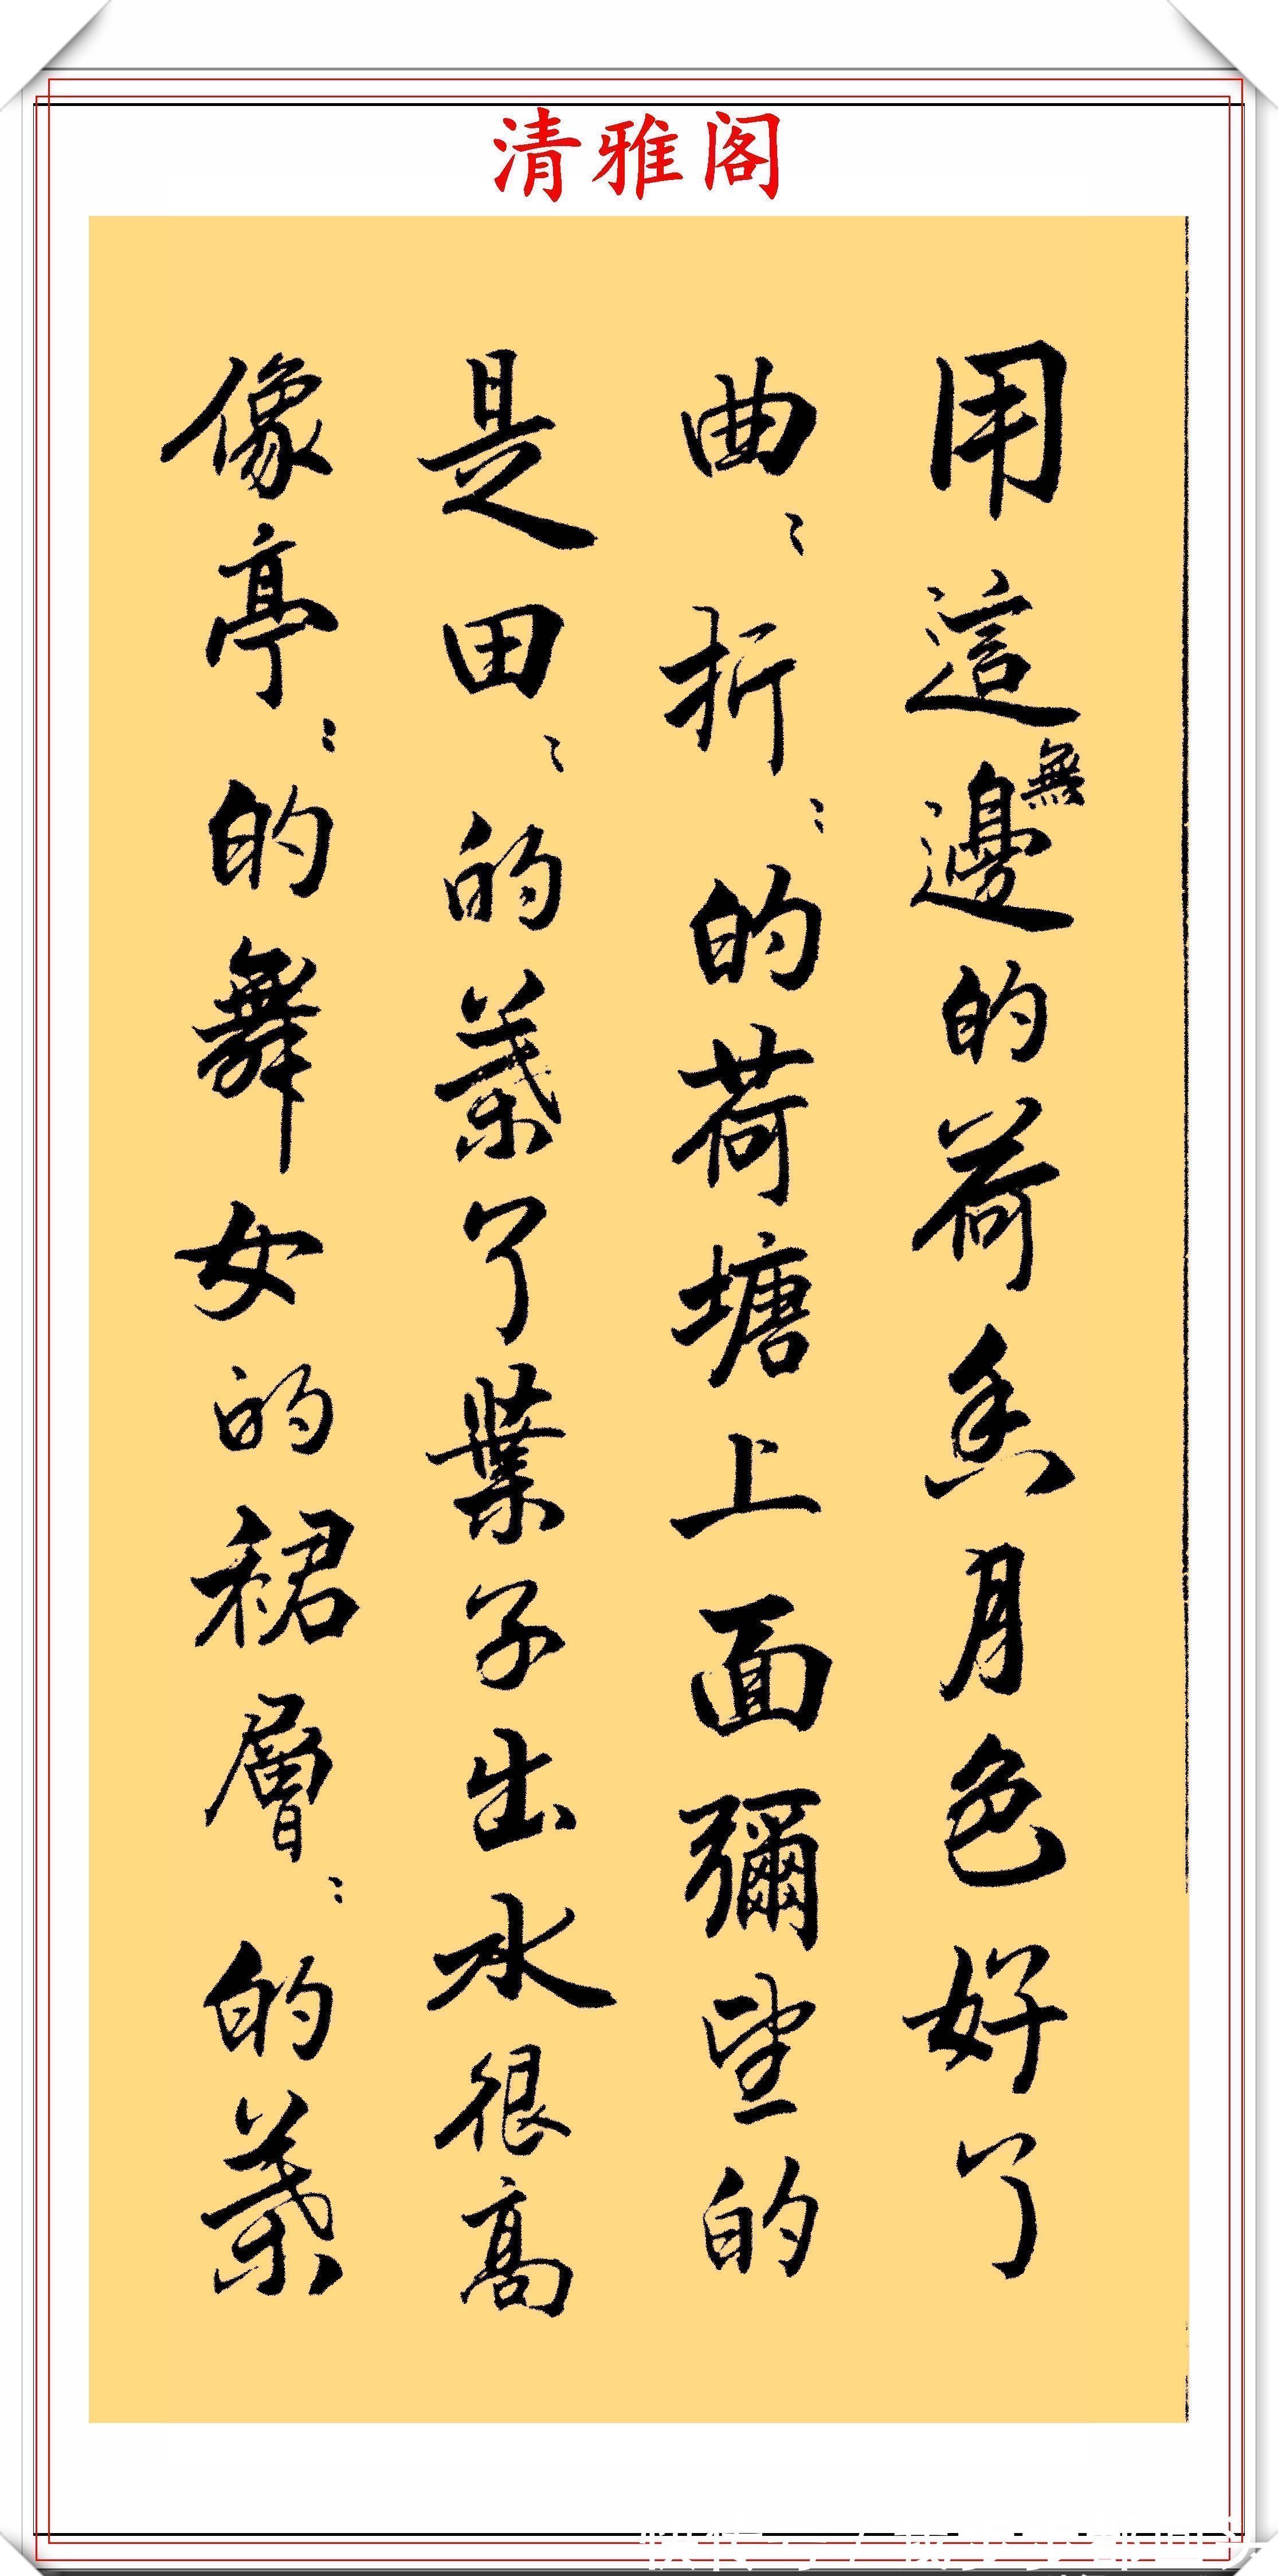 清雅阁
用這無邊的荷香月色好了
曲〻折〻的荷塘上面彌望的
是田〻的葉了葉子出水很高
像亭〻的舞女的裙層〻的葉